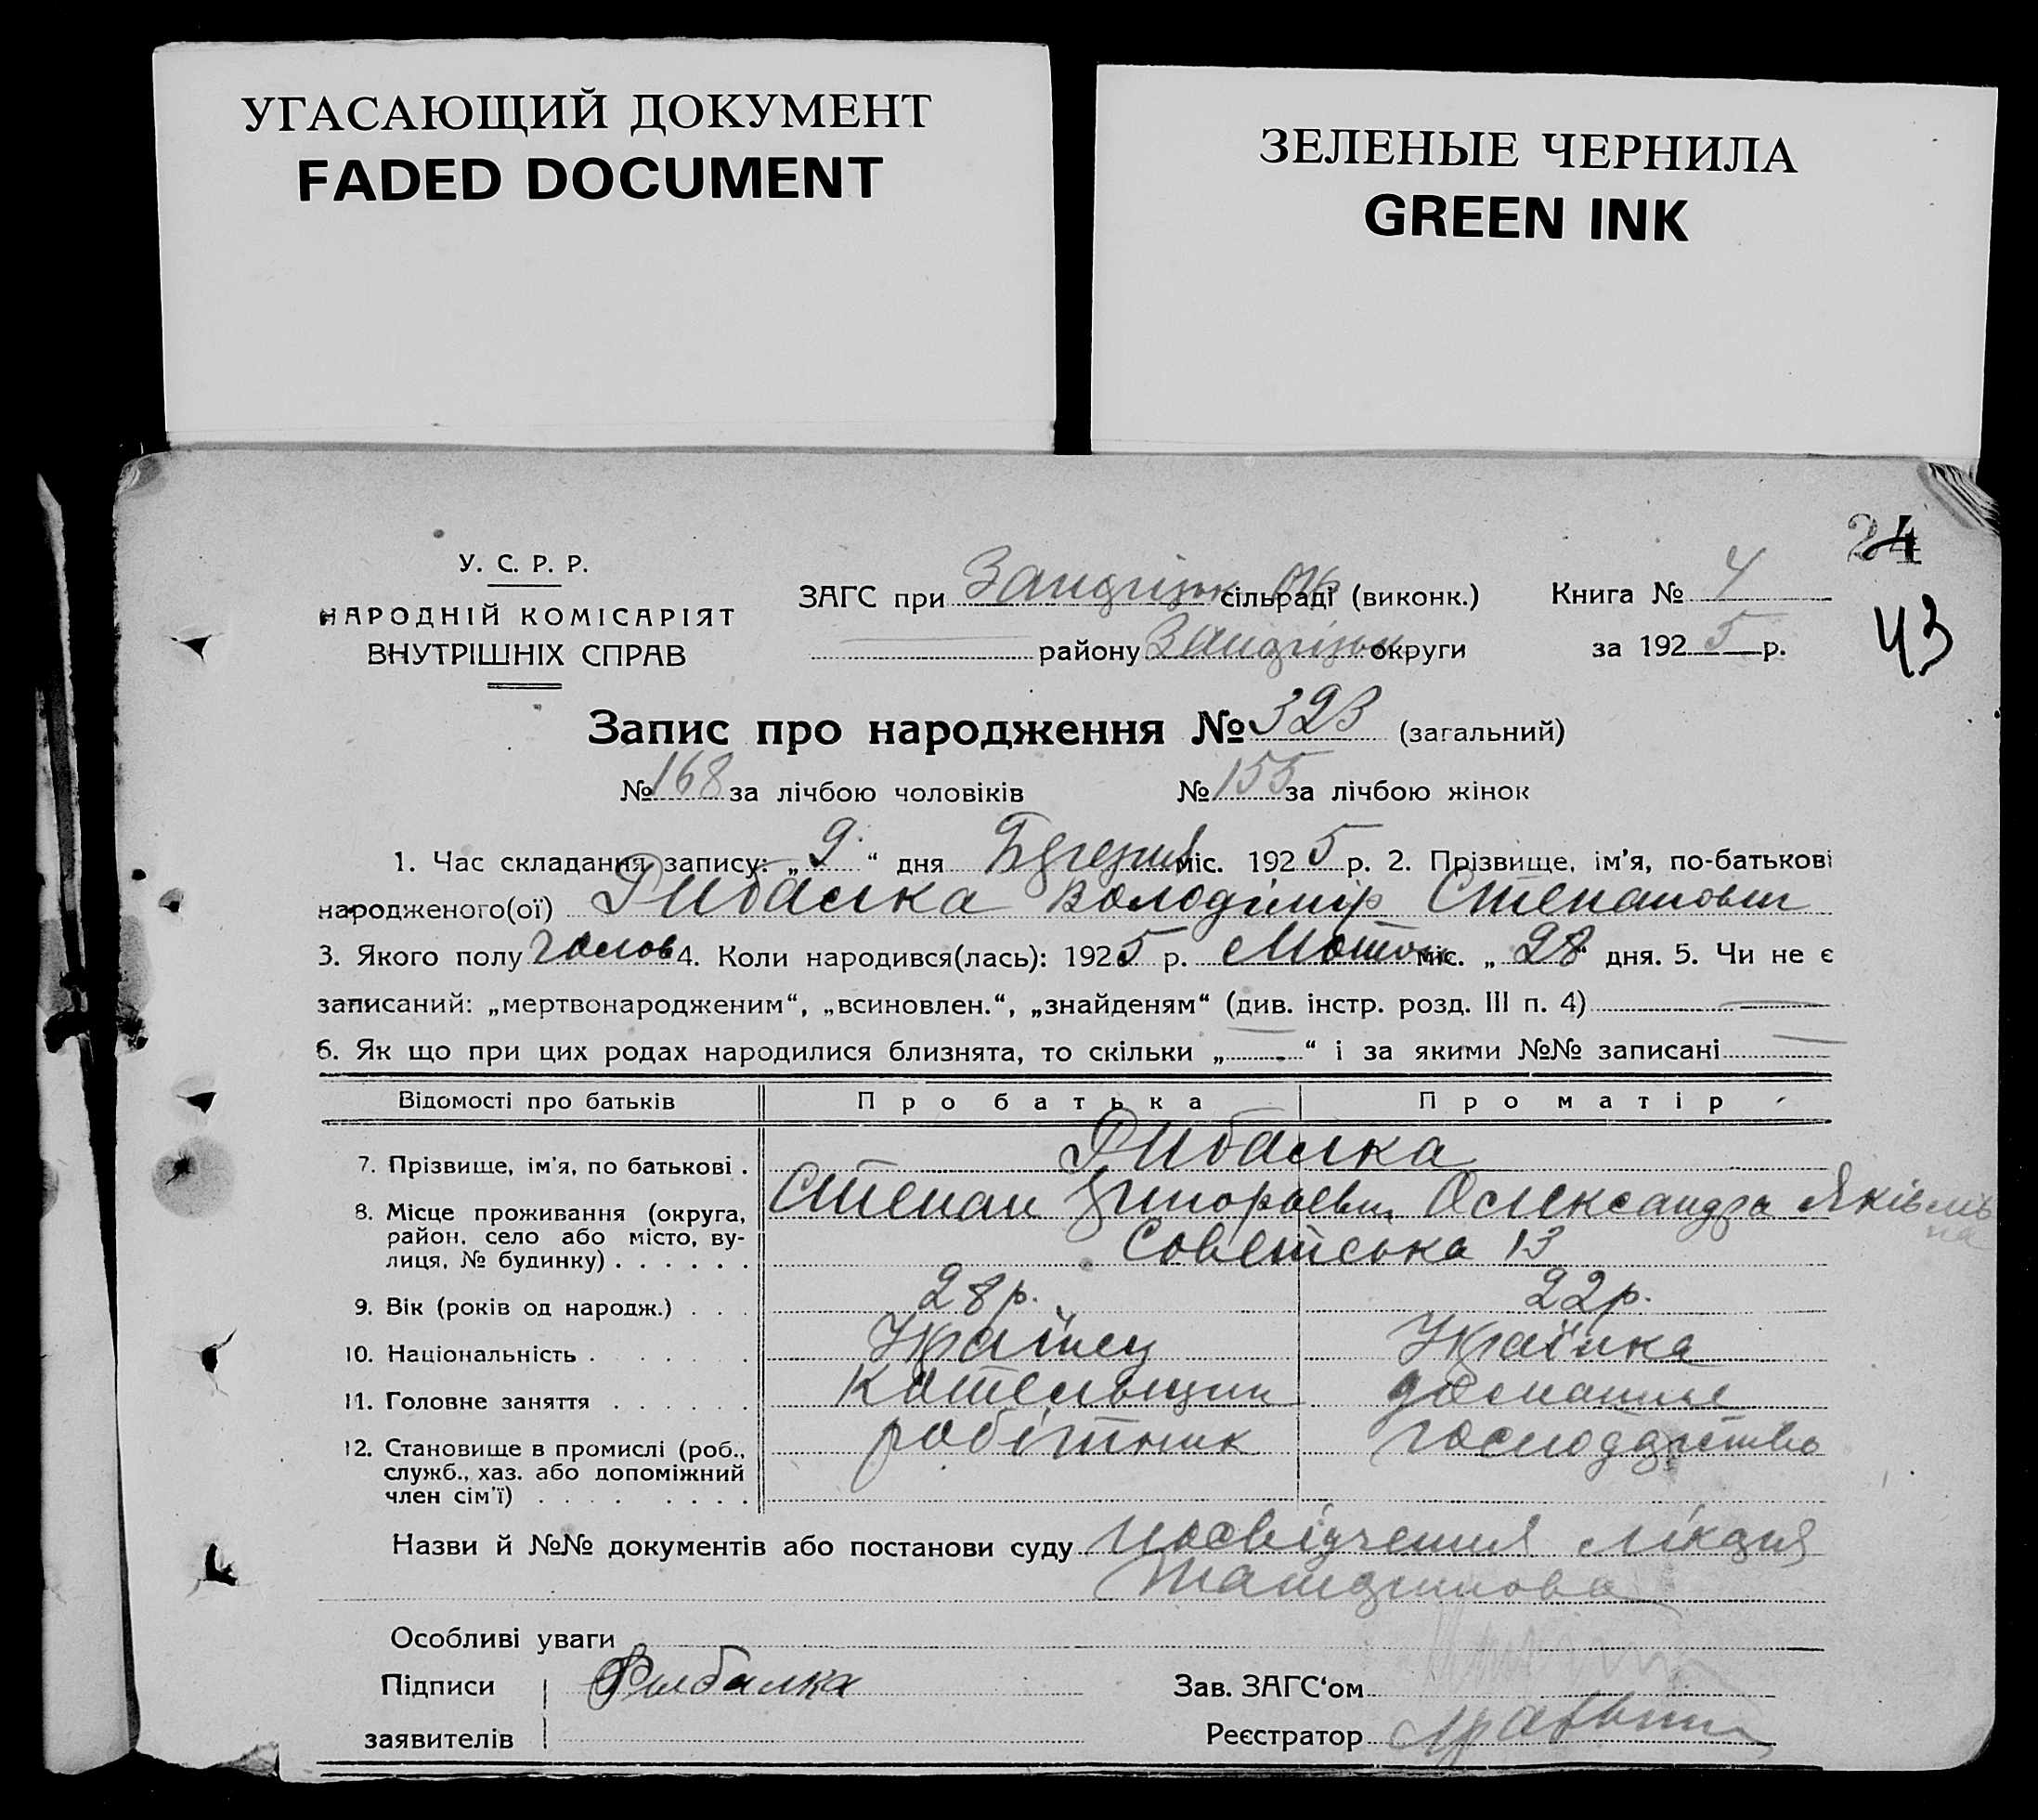 УГАСАЮЩИЙ ДОКУМЕНТ
FADED DOCUMENT
ЗЕЛЕНЫЕ ЧЕРНИЛА
GREEN INK
24
43
У. С. Р. Р.
НАРОДНІЙ КОМІСАРІЯТ
ВНУТРІШНІХ СПРАВ
ЗАГС при сільраді (виконк.) Книга № 4
району округи за 1925 р.
Запис про народження № 323 (загальний)
№ 168 за лічбою чоловіків № 155 за лічбою жінок
1. Час складання запису: „ 9 “ дня Березня міс. 1925 р. 2. Прізвище, ім’я, по-батькові
народженого(ої) Рибалка Володімір Степанович
3. Якого полу чолов 4. Коли народився(лась): 1925 р. Лютого міс. „ 28 “ дня. 5. Чи не є
записаний: „мертвонародженим“, „всиновлен.“, „знайденям“ (див. інстр. розд. III п. 4)
6. Як що при цих родах народилися близнята, то скільки „ “ і за якими №№ записані
Відомості про батьків Про батька Про матір
7. Прізвище, ім’я, по батькові . Рибалка
8. Місце проживання (округа, Степан Григорьевич Олександра Яківлівна
район, село або місто, ву- Советська 13
лиця, № будинку) . . . . . .
9. Вік (років од народж.) . . . 28 р. 22 р.
10. Національність . . . . . Українец Українка
11. Головне заняття . . . . . . Котельщик домашнє
12. Становище в промислі (роб., робітник господарство
служб., хаз. або допоміжний
член сім’ї) . . . . . . . .
Назви й №№ документів або постанови суду посвідчення лікаря
Особливі уваги
Підписи Рыбалка Зав. ЗАГС‘ом
заявителів Реєстратор